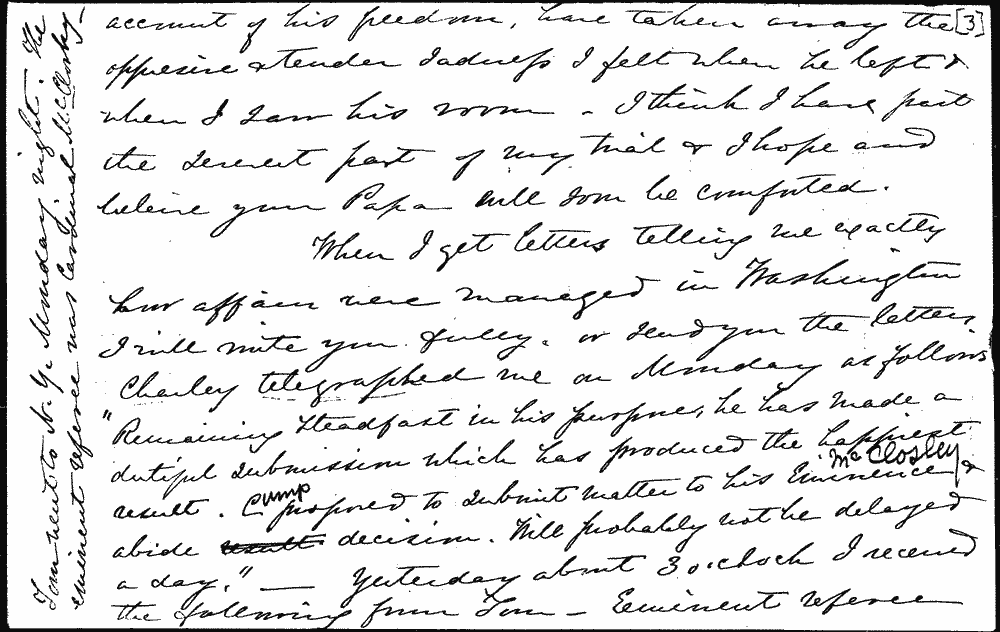 account of his freedom, have taken away the [3]
oppresive & tender sadness I felt when he left &
when I saw his room - I think I have past
the serverest part of my trial & I hope and
believe your Papa will soon be comforted.
When I get letters telling me exactly
how affairs were managed in Washington
I will write you fully. or send you the letters.
Charley telegraphed me on Monday as follows
"Remaining steadfast in his purpose, he has made a
dutiful submission which has produced the happiest
result. Cump proposed to submit matter to his Eminence McClosley &
abide result decision. Will probably not be delayed
a day." — Yesterday about 3 o.clock I received
the following from Tom - Eminent referee
Tom went to N.Y. Monday night. The
eminent referee was Cardinal McClosky-